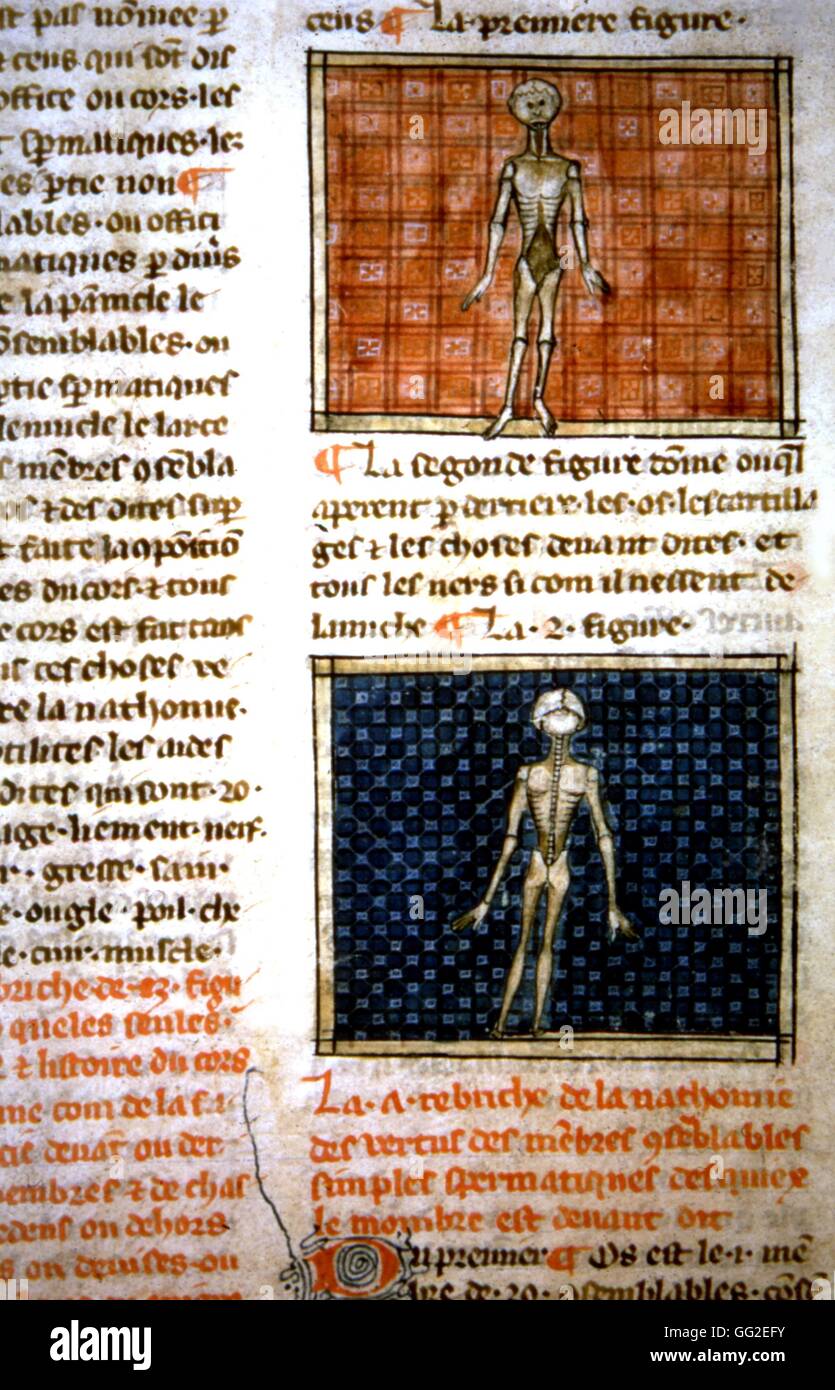 st pas nõmee p
t ceus qui sõt dis
office ou cors les
t spmatiques lez
es ptie non ¶
lables · ou offici
matiques p diũs
e la pamcle le
õsemblables · ou
ptie spmatiques
s mẽbres 9sẽbla
us et des dites sup
t faite la 9põsicio
es du cors · et tous
e cors est fait tans
us ces choses ve
re la nathomie ·
utilites les aides
dites qui sont · 20 ·
uge · liement · nerf ·
r · gresse · saim ·
e · ongle · poil · che
le · cuir · muscle ·
briche · de · 13 · figu
queles seules ·
z et histoire du cors
me com de la si
cis devãt ou der
membres et de chas
dedens ou dehors
s ou devises · ou
ceus ¶ La premiere figure ·
¶ La segonde figure dõme ouql
aperent p derriere · les · os · les cartilla
ges et les choses devant dites · et
tous les ners si com il nessent de
la nuche ¶ La · 2 · figure ·
La · A · rebriche de la nathomie
des vertus des mẽbres 9sẽblables
simples spermatiques desquiex
le nombre est devant dit
Du premier ¶ Os est le · 1 · mẽ
bre · de · 20 · 9semblables · 9sẽ
alamy
alamy
a
a
a
a
a
a
alamy
Image ID: GG2EFY
www.alamy.com